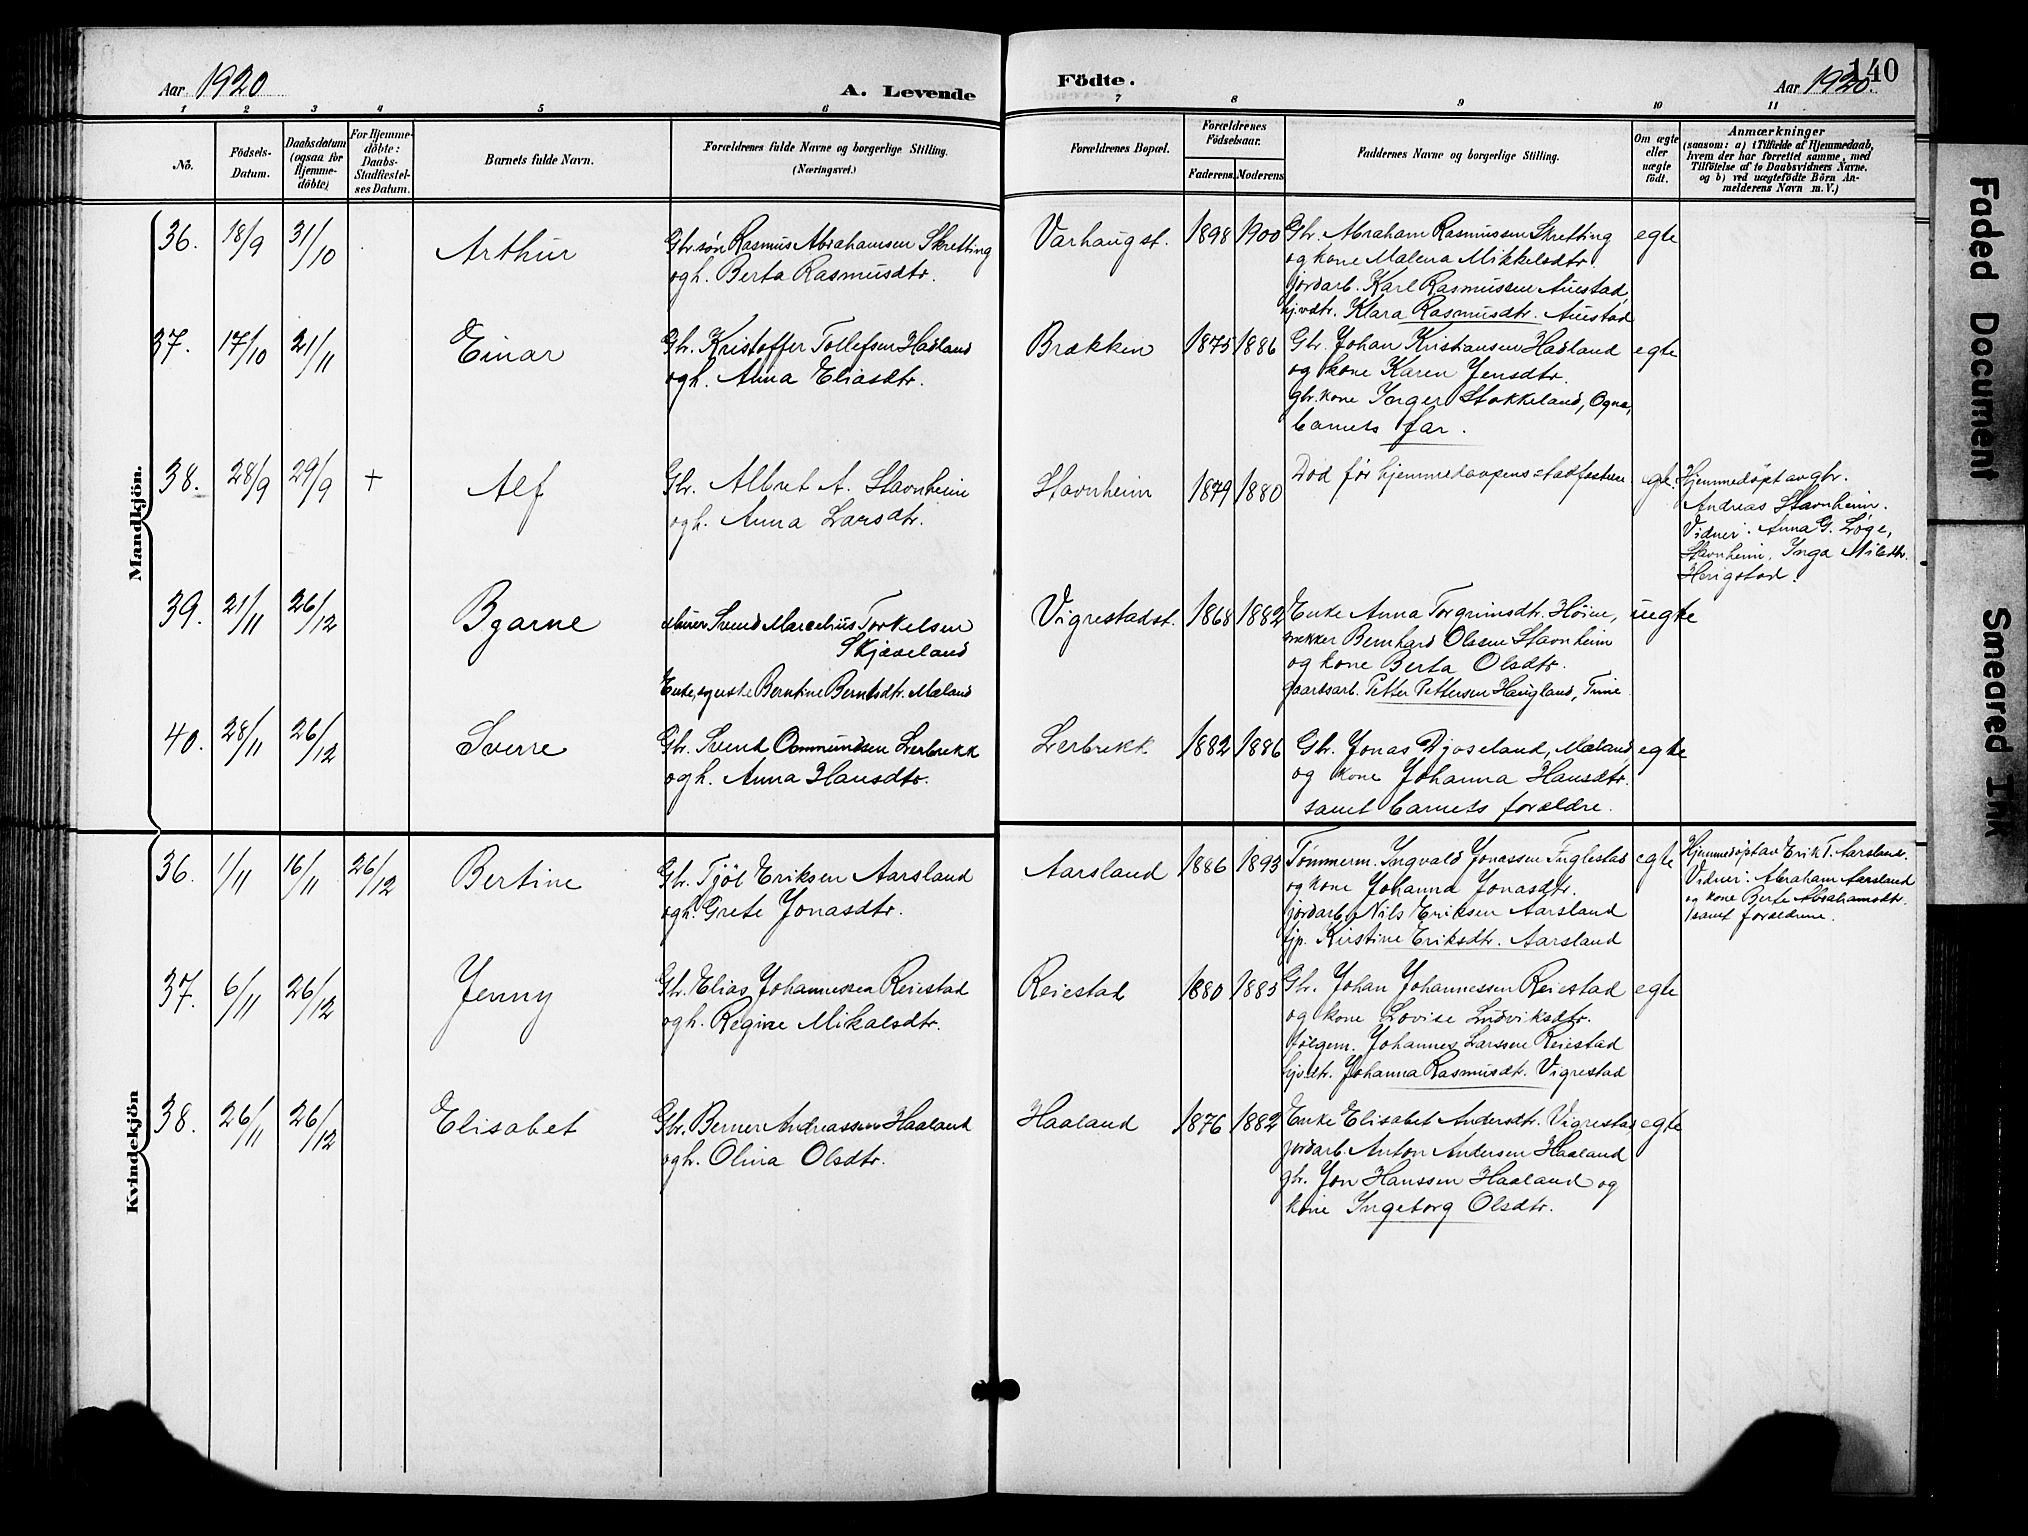 Aar 1920
A. Levende
Födte.
Aar 1920.
140
1 2 3 4 5 6 7 8 9 10 11
Nö.
Födsels-
Datum.
Daabsdatum
(ogsaa for
Hjemme-
döbte)
For Hjemme-
döbte:
Daabs-
Stadfæstel-
ses Datum.
Barnets fulde Navn.
Forældrenes fulde Navne og borgerlige Stilling.
(Næringsvei.)
Forældrenes Bopæl.
Forældrenes
Födselsaar.
Faderens Moderens
Faddernes Navne og borgerlige Stilling.
Om ægte
eller
uægte
födt.
Anmærkninger
(saasom: a) i Tilfælde af Hjemmedaab,
hvem der har forrettet samme, med
Tilföielse af to Daabsvidners Navne.
og b) ved uægtefödte Börn An-
melderens Navn m. V.)
Mandkjön.
36. 18/9 31/10 Arthur
Gbr.søn Rasmus Abrahamsen Skretting
og h. Berta Rasmusdtr.
Varhaug st. 1898 1900
Gbr. Abraham Rasmussen Skretting
og kone Malena Mikkelsdtr.
jordarb. Karl Rasmussen Auestad,
hjvdtr. Klara Rasmusdtr. Auestad
egte
37. 17/10 21/11 Einar
Gbr. Kristoffer Tollefsen Hadland
og h. Anna Eliasdtr.
Brækken 1875 1886
Gbr. Johan Kristiansen Hadland
og kone Karen Jensdtr.
gbr.kone Inger Stokkeland, Ogna,
barnets far.
egte
38. 28/9 29/9 + Alf
Gbr. Albret A. Stavnheim
og h. Anna Larsdtr.
Stavnheim 1879 1880
Død før hjemmedaapens stadfestelse
egte
Hjemmedøpt av gbr.
Andreas Stavnheim.
Vidner: Anna G. Løge,
Stavnheim, Inga Nilsdtr.
Herigstad.
39. 21/11 26/12 Bjarne
Murer Svend Marcelius Torkelsen
Skjæveland
Enke, Berntine Berntsdtr. Mæland
Vigrestad st. 1868 1882
Enke Anna Torgrimsdtr. Høien,
snekker Bernhard Olsen Stavnheim
og kone Berta Olsdtr.
gaardsarb. Petter Pettersen Haugland, Time
uegte
40. 28/11 26/12 Sverre
Gbr. Svend Ommundsen Lerbrekk
og h. Anna Hansdtr.
Lerbrekk 1882 1886
Gbr. Jonas Djøseland, Mæland,
og kone Johanna Hansdtr.
samt barnets forældre.
egte
Kvindekjön
36. 1/11 16/11 26/12 Bertine
Gbr. Tjøl Eriksen Aarsland
og h. Grete Jonasdtr.
Aarsland 1886 1893
Tømmerm. Ingvald Jonassen Fuglestad
og kone Johanna Jonasdtr.
jordarb. Nils Eriksen Aarsland
tjp. Kirstine Eriksdtr. Aarsland
egte
Hjemmedøpt av Erik T. Aarsland.
Vidner: Abraham Aarsland
og kone Berte Abrahamsdtr.
samt forældrene.
37. 6/11 26/12 Jenny
Gbr. Elias Johannessen Reiestad
og h. Regine Mikalsdtr.
Reiestad 1880 1885
Gbr. Johan Johannessen Reiestad
og kone Lovise Ludviksdtr.
følgem. Johannes Larssen Reiestad
hjv.dtr. Johanna Rasmusdtr. Vigrestad
egte
38. 26/11 26/12 Elisabet
Gbr. Berner Andreassen Haaland
og h. Olina Olsdtr.
Haaland 1876 1882
Enke Elisabet Andersdtr. Vigrestad
jordarb. Anton Andersen Haaland
gbr. Jon Hanssen Haaland og
kone Ingeborg Olsdtr.
egte
Faded Document
Smeared Ink